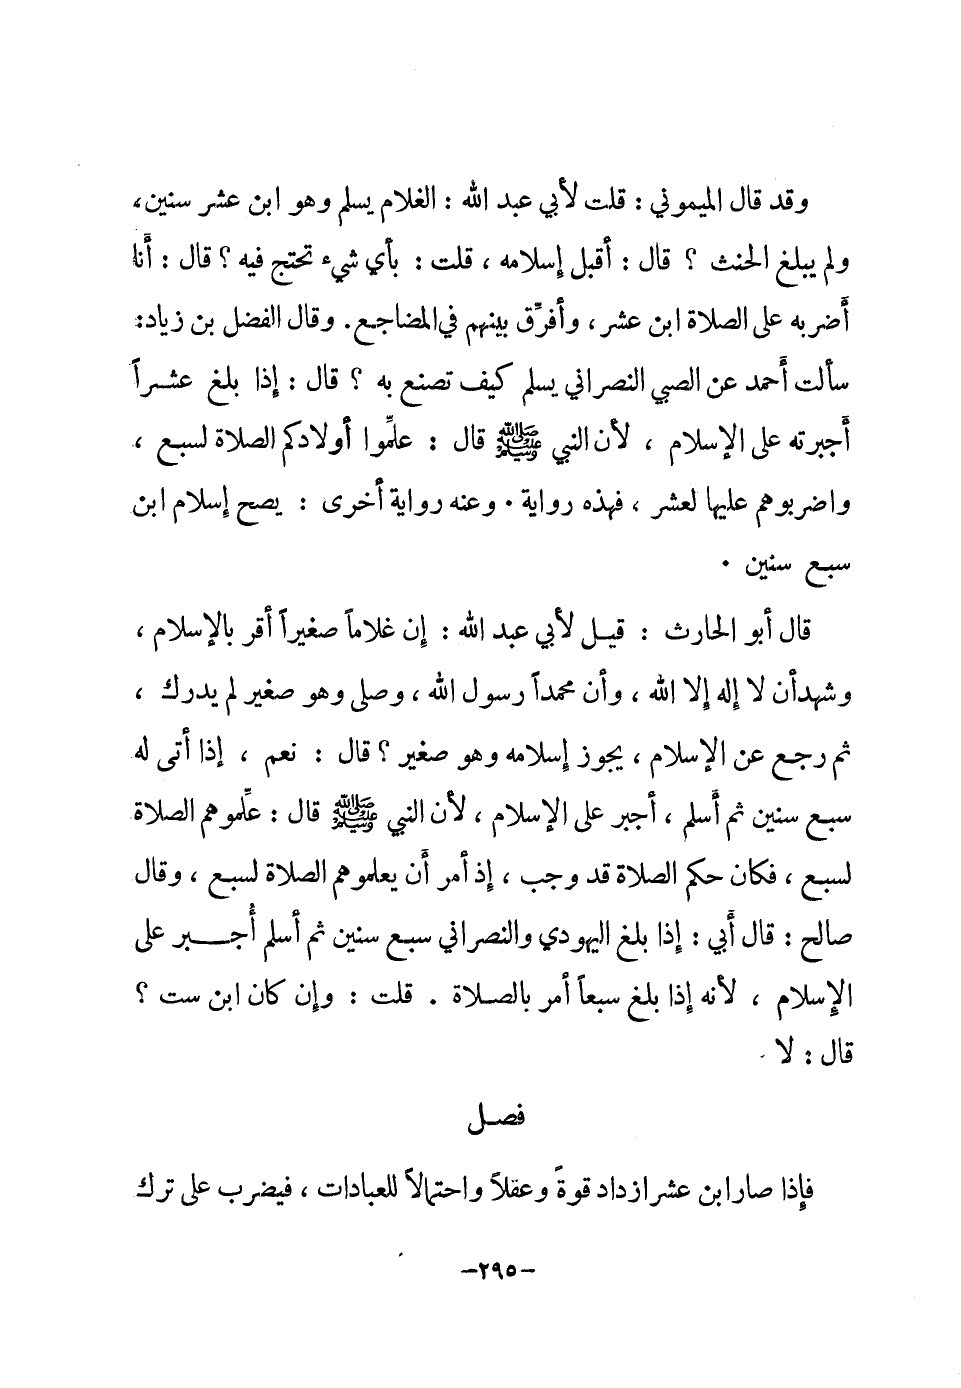 وقد قال الميموني : قلت لأبي عبد الله : الغلام يسلم وهو ابن عشر سنين،
ولم يبلغ الحنث ؟ قال : أقبل إسلامه ، قلت : بأي شيء تحتج فيه ؟ قال : أَنا
أَضربه على الصلاة ابن عشر ، وأفرِّق بينهم في المضاجع. وقال الفضل بن زياد:
سألت أَحمد عن الصبي النصراني يسلم كيف تصنع به ؟ قال : إِذا بلغ عشراً
أَجبرته على الإسلام ، لأَن النبي ﷺ قال : علِّموا أَولادكم الصلاة لسبع ،
واضربوهم عليها لعشر ، فهذه رواية . وعنه رواية أَخرى : يصح إِسلام ابن
سبع سنين .
قال أَبو الحارث : قيل لأَبي عبد الله : إِن غلاماً صغيراً أَقر بالإِسلام ،
وشهد أن لا إِله إِلا الله ، وأَن محمداً رسول الله ، وصلى وهو صغير لم يدرك ،
ثم رجع عن الإِسلام ، يجوز إِسلامه وهو صغير ؟ قال : نعم ، إِذا أَتى له
سبع سنين ثم أَسلم ، أجبر على الإِسلام ، لأَن النبي ﷺ قال : علِّموهم الصلاة
لسبع ، فكان حكم الصلاة قد وجب ، إِذ أمر أَن يعلموهم الصلاة لسبع ، وقال
صالح : قال أَبي : إِذا بلغ اليهودي والنصراني سبع سنين ثم أسلم أُجبر على
الإِسلام ، لأَنه إِذا بلغ سبعاً أَمر بالصلاة . قلت : وإِن كان ابن ست ؟
قال : لا .
فصل
فإِذا صار ابن عشر ازداد قوةً وعقلاً واحتمالاً للعبادات ، فيضرب على ترك
-٢٩٥-